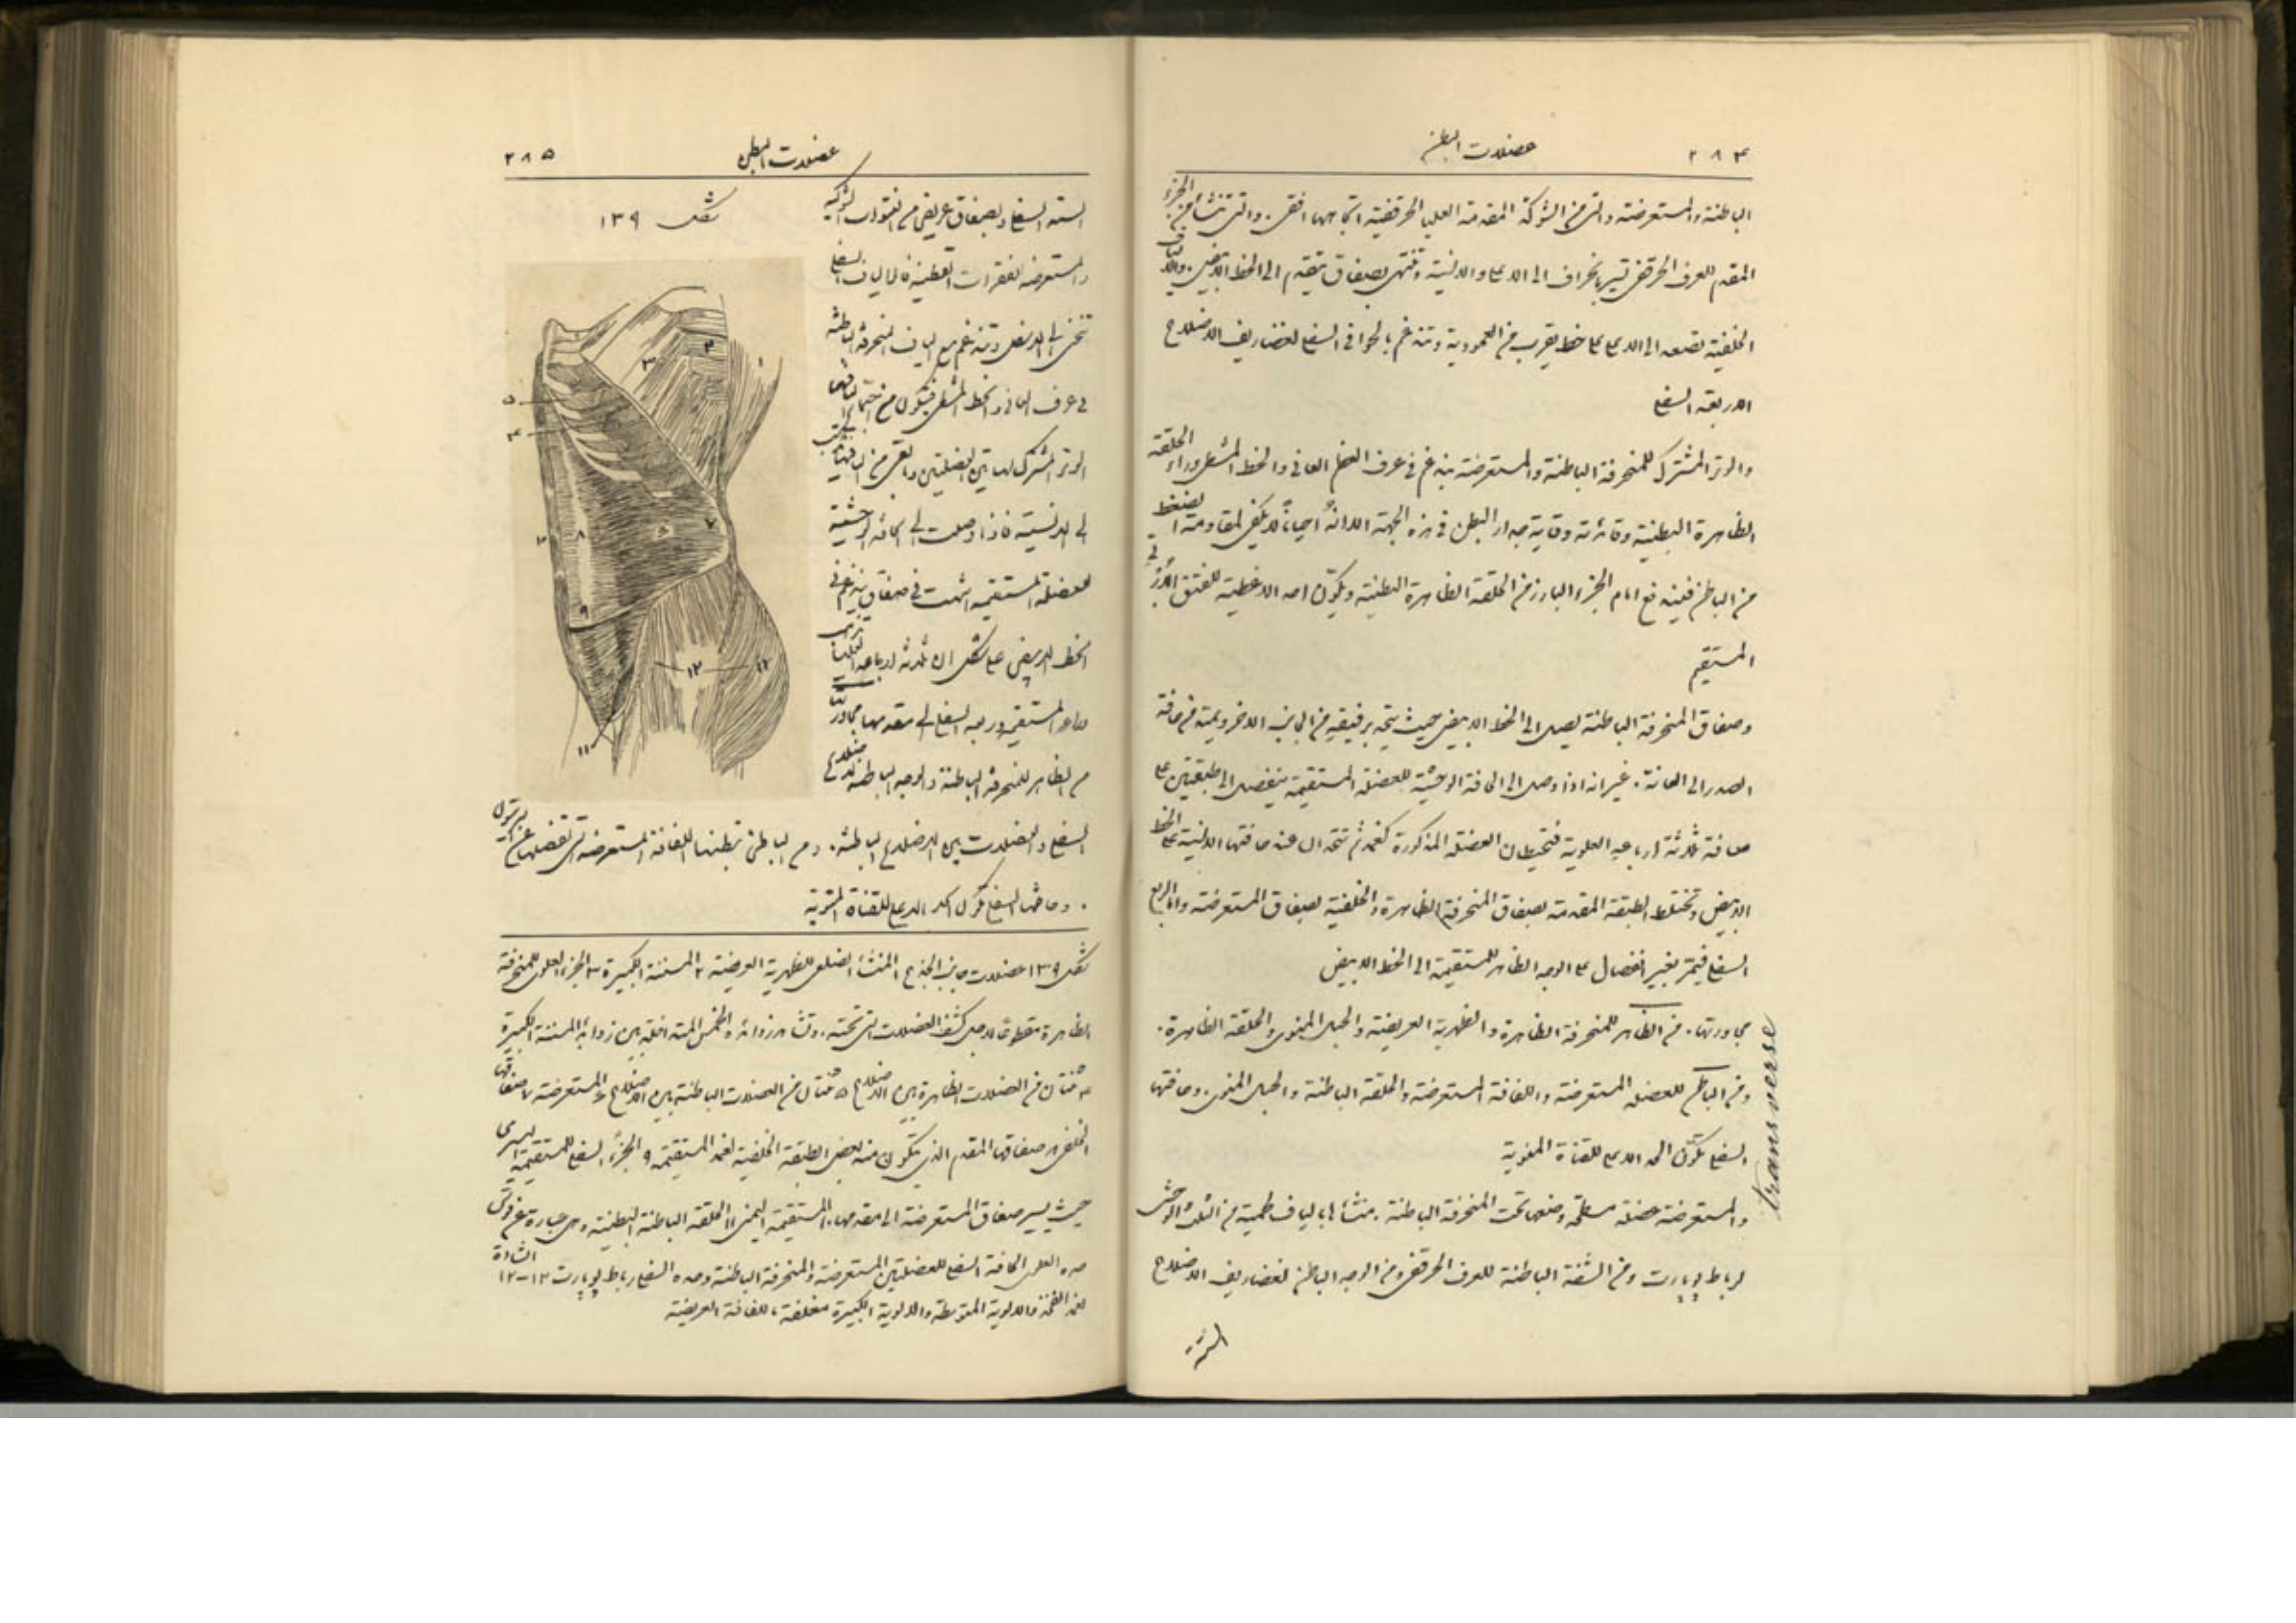 ٢٨٤
عضلات البطن
الباطنة والمستعرضة والتي من الشوكة المقدمة العليا الحرقفية اتجاهها افقي. والتي تنشأ من الجزء
المقدم للعرف الحرقفي تسير بانحراف الى الاعلى والانسية وتنتهي بصفاق يتقدم الى الخط الابيض. والالياف
الخلفية تصعد الى الاعلى على خط يقرب من العمودية وتندغم بالحوافي السفلى لغضاريف الاضلاع
الاربعة السفلى
والوتر المشترك للمنحرفة الباطنة والمستعرضة يندغم في عرف العظم العاني والخط المشطي وراء الحلقة
الظاهرة البطنية وفائدته وقاية جدار البطن في هذه الجهة الا انه احياناً لا يكفي لمقاومة الضغط
من الباطن فيندفع امام الجزء البارز من الحلقة الظاهرة البطنية ويكوّن احد الاغطية للفتق
المستقيم
وصفاق المنحرفة الباطنة يصل الى الخط الابيض حيث يتحد برفيقه من الجانب الاخر ويمتد من حافة
الصدر الى العانة. غير انه اذا وصل الى الحافة الوحشية للعضلة المستقيمة ينفصل الى طبقتين على
مسافة ثلاثة ارباعه العلوية فتحيطان العضلة المذكورة كغمد ثم تتحدان عند حافتها الانسية على الخط
الابيض وتختلط الطبقة المقدمة بصفاق المنحرفة الظاهرة والخلفية بصفاق المستعرضة واما الربع
السفلي فيمر بغير انفصال على الوجه الظاهر للمستقيمة الى الخط الابيض
مجاورتها. من الظاهر للمنحرفة الظاهرة والظهرية العريضة والحبل المنوي والحلقة الظاهرة.
ومن الباطن للعضلة المستعرضة واللفافة المستعرضة والحلقة الباطنة والحبل المنوي. وحافتها
السفلى تكوّن الحد الاعلى للقناة المغبنية
والمستعرضة عضلة مسطحة وضعها تحت المنحرفة الباطنة. منشأها بالياف لحمية من الثلث الوحشي
لرباط پوپارت ومن الشفة الباطنة للعرف الحرقفي ومن الوجه الباطن لغضاريف الاضلاع
الستة
transverse
عضلات البطن
٢٨٥
الستة السفلى وبصفاق عريض من النتوءات الشوكية
والمستعرضة للفقرات القطنية فالالياف السفلى
تنحني الى الاسفل وتندغم مع الياف المنحرفة الباطنة
في عرف العانة والخط المشطي فيتكون من
الوتر المشترك لهاتين العضلتين
الى الانسية فاذا وصلت الى الحافة الوحشية
للعضلة المستقيمة انتهت في صفاق يندغم في
الخط الابيض على شكل ان ثلاثة ارباعه العليا
وراء المستقيم وربعه السفلي الى مقدمها مجاورتها
من الظاهر للمنحرفة الباطنة والوجه الباطن للاضلاع
السفلى والعضلات بين الاضلاع الباطنة. ومن الباطن تبطنها اللفافة المستعرضة التي تفصلها عن البريتون
. وحافتها السفلى تكوّن الحد الاعلى للقناة
شكل ١٣٩
١
٢
٣
٤
٥
٦
٧
٨
٩
١٠
١١
١٢
١٣
شكل ١٣٩ عضلات جانب الجذع ١ المنشأ الضلعي للظهرية العريضة ٢ المسننة الكبيرة ٣ الجزء العلوي للمنحرفة
الظاهرة مقطوعة لاجل كشف العضلات التي تحته. وتشاهد زوائده الخمس المتداخلة بين زوائد المسننة الكبيرة
٤ ثنتان من العضلات الظاهرة بين الاضلاع ٥ ثنتان من العضلات الباطنة بين الاضلاع ٦ المستعرضة ٧ صفاقها
الخلفي ٨ صفاقها المقدم الذي يتكون منه بعض الطبقة الخلفية لغمد المستقيمة ٩ الجزء السفلي للمستقيمة اليسرى
حيث يسير صفاق المستعرضة الى مقدمها ١٠ المستقيمة اليمنى ١١ الحلقة الباطنة البطنية وهي عبارة عن فرق
حده العلوي الحافة السفلى للعضلتين المستعرضة والمنحرفة الباطنة وحده السفلي رباط پوپارت ١٢-١٣
لغمد الفخذ والالوية المتوسطة والالوية الكبيرة مغلفة باللفافة العريضة